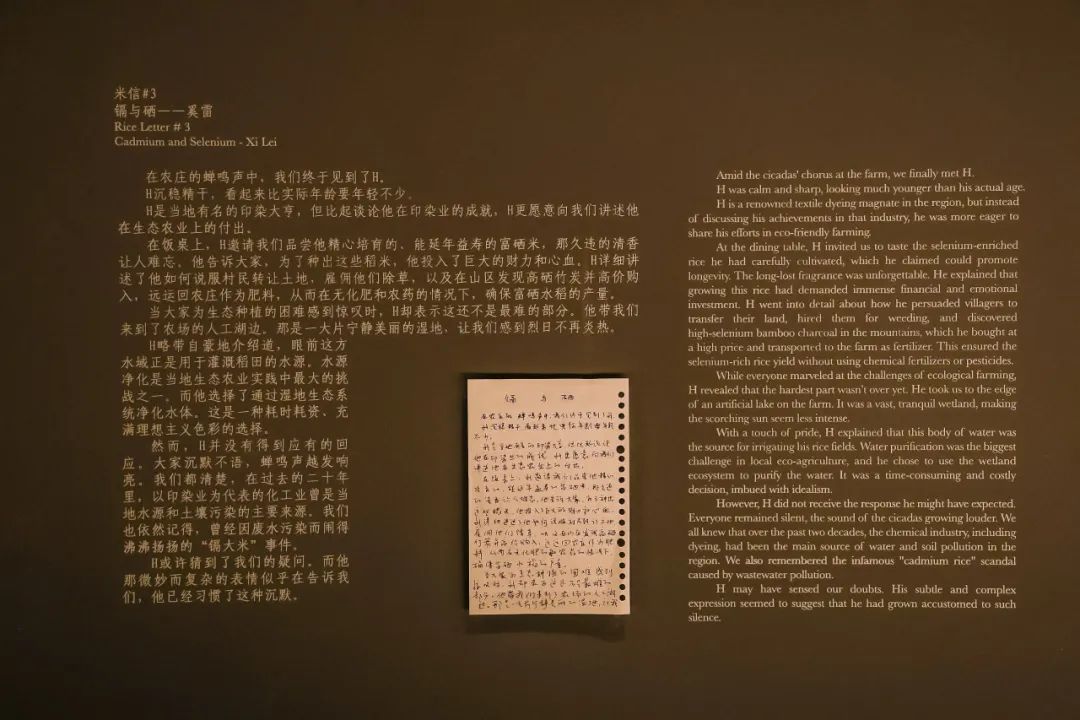 米信#3
镉与硒——奚雷
Rice Letter # 3
Cadmium and Selenium - Xi Lei
在农庄的蝉鸣声中，我们终于见到了H。
H沉稳精干，看起来比实际年龄要年轻不少。
H是当地有名的印染大亨，但比起谈论他在印染业的成就，H更愿意向我们讲述他
在生态农业上的付出。
在饭桌上，H邀请我们品尝他精心培育的、能延年益寿的富硒米，那久违的清香
让人难忘。他告诉大家，为了种出这些稻米，他投入了巨大的财力和心血。H详细讲
述了他如何说服村民转让土地，雇佣他们除草，以及在山区发现高硒竹炭并高价购
入，远运回农庄作为肥料，从而在无化肥和农药的情况下，确保富硒水稻的产量。
当大家为生态种植的困难感到惊叹时，H却表示这还不是最难的部分。他带我们
来到了农场的人工湖边。那是一大片宁静美丽的湿地，让我们感到烈日不再炎热。
H略带自豪地介绍道，眼前这方
水域正是用于灌溉稻田的水源。水源
净化是当地生态农业实践中最大的挑
战之一。而他选择了通过湿地生态系
统净化水体。这是一种耗时耗资、充
满理想主义色彩的选择。
然而，H并没有得到应有的回
应。大家沉默不语，蝉鸣声越发响
亮。我们都清楚，在过去的二十年
里，以印染业为代表的化工业曾是当
地水源和土壤污染的主要来源。我们
也依然记得，曾经因废水污染而闹得
沸沸扬扬的“镉大米”事件。
H或许猜到了我们的疑问。而他
那微妙而复杂的表情似乎在告诉我
们，他已经习惯了这种沉默。
镉 与 硒
Amid the cicadas' chorus at the farm, we finally met H.
H was calm and sharp, looking much younger than his actual age.
H is a renowned textile dyeing magnate in the region, but instead
of discussing his achievements in that industry, he was more eager to
share his efforts in eco-friendly farming.
At the dining table, H invited us to taste the selenium-enriched
rice he had carefully cultivated, which he claimed could promote
longevity. The long-lost fragrance was unforgettable. He explained that
growing this rice had demanded immense financial and emotional
investment. H went into detail about how he persuaded villagers to
transfer their land, hired them for weeding, and discovered
high-selenium bamboo charcoal in the mountains, which he bought at
a high price and transported to the farm as fertilizer. This ensured the
selenium-rich rice yield without using chemical fertilizers or pesticides.
While everyone marveled at the challenges of ecological farming,
H revealed that the hardest part wasn't over yet. He took us to the edge
of an artificial lake on the farm. It was a vast, tranquil wetland, making
the scorching sun seem less intense.
With a touch of pride, H explained that this body of water was
the source for irrigating his rice fields. Water purification was the biggest
challenge in local eco-agriculture, and he chose to use the wetland
ecosystem to purify the water. It was a time-consuming and costly
decision, imbued with idealism.
However, H did not receive the response he might have expected.
Everyone remained silent, the sound of the cicadas growing louder. We
all knew that over the past two decades, the chemical industry, including
dyeing, had been the main source of water and soil pollution in the
region. We also remembered the infamous "cadmium rice" scandal
caused by wastewater pollution.
H may have sensed our doubts. His subtle and complex
expression seemed to suggest that he had grown accustomed to such
silence.